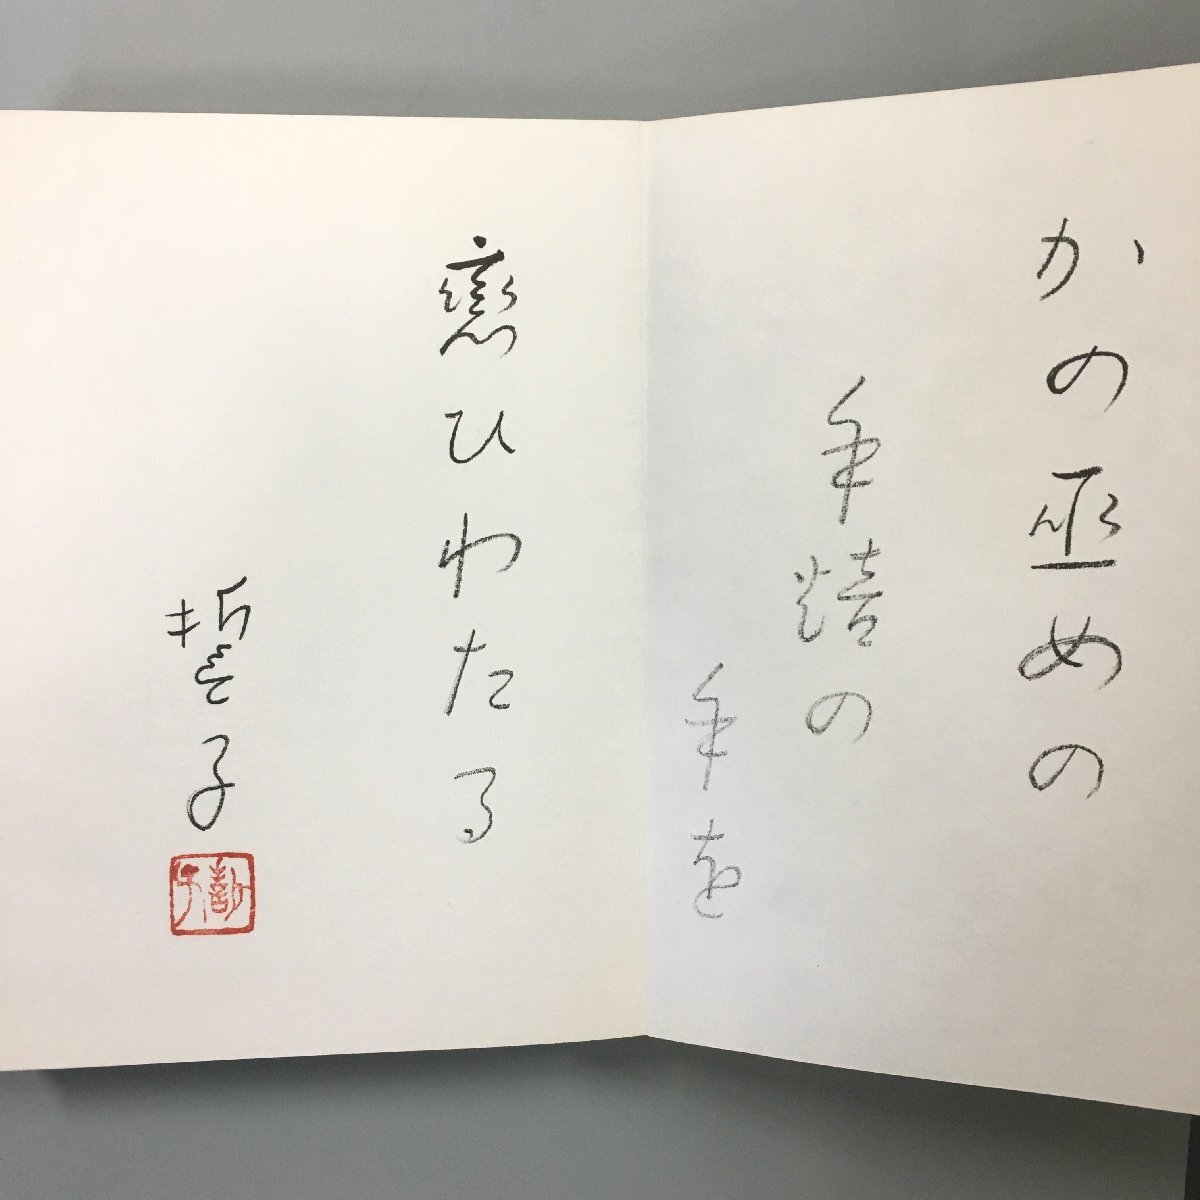 かの巫女の
手焙の
手を
戀ひわたる
誓子